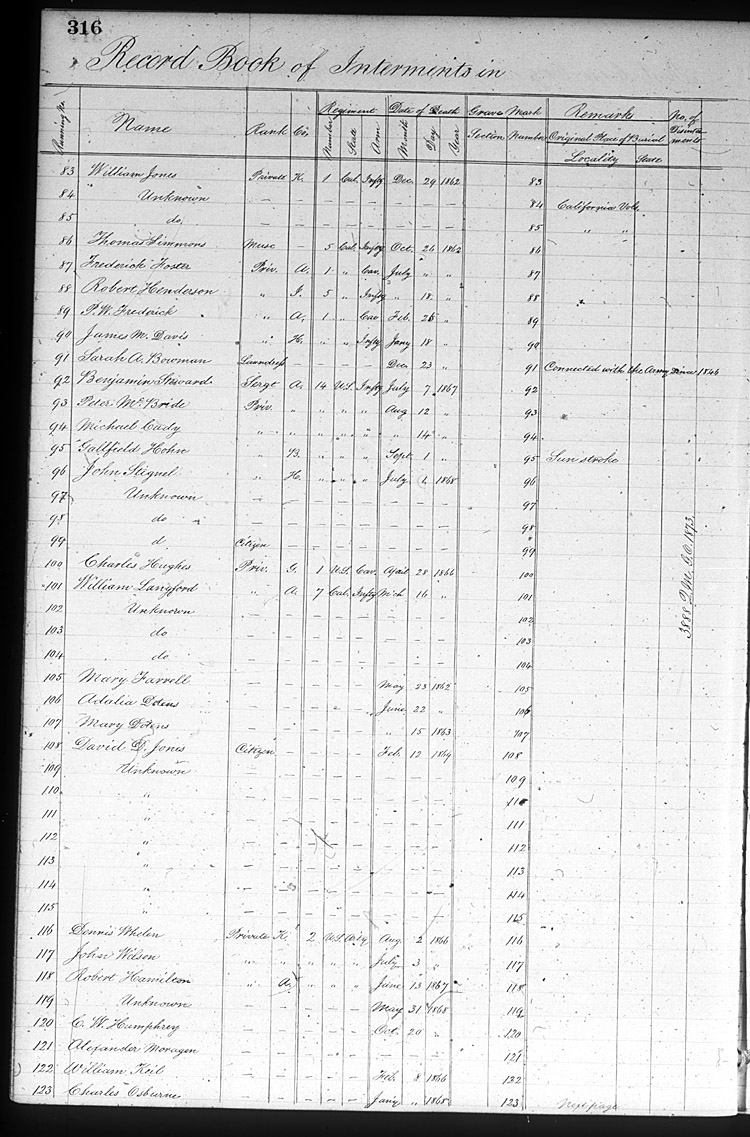 316
Record Book of Interments in
Running No. Name Rank Co. Regiment Number State Arm Date of Death Month Day Year Grave Mark Section Number Remarks Original Place of Burial Locality State No. of Disinterments
83 William Jones Private K. 1 Cal. Infty Dec. 29 1862 83
84 Unknown — — — — — — — — 84 California Vols.
85 do — — — — — — — — 85 " "
86 Thomas Simmons Musc — 5 Cal. Infty Oct. 26 1862 86
87 Frederick Foster Priv. A. 1 " Cav. July " " 87
88 Robert Henderson " I. 5 " Infty " 18 " 88
89 P. W. Frederick " A. 1 " Cav. Feb. 26 " 89
90 James M. Davis " H. " " Infty Jany 18 " 90
91 Sarah A. Bowman Laundress Dec. 23 " 91 Connected with the Army since 1846
92 Benjamin Steward Sergt A. 14 U.S. Infty July 7 1867 92
93 Peter McBride Priv. " " " " Aug 12 " 93
94 Michael Cady " " " " " " 14 " 94
95 Gallfield Hohn " B. " " " Sept. 1 " 95 Sun stroke
96 John Stignel " H. " " " July 1 1868 96
97 Unknown — — — — — — — — 97
98 do — — — — — — — — 98
99 d Citizen — — — — — — — 99
100 Charles Hughes Priv. G. 1 U.S. Cav. April 28 1866 100
101 William Langford " A. 7 Cal. Infty Mch 16 " 101
102 Unknown — — — — — — — — 102
103 do — — — — — — — — 103
104 do — — — — — — — — 104
105 Mary Farrell May 23 1862 105
106 Adalia Dotens June 22 " 106
107 Mary Dotens " 15 1863 107
108 David D. Jones Citizen Feb. 12 1864 108
109 Unknown — — — — — — — — 109
110 " — — — — — — — — 110
111 " — — — — — — — — 111
112 " — — — — — — — — 112
113 " — — — — — — — — 113
114 " — — — — — — — — 114
115 " — — — — — — — — 115
116 Dennis Whelen Private K. 2 U.S. Arty Aug. 2 1866 116
117 John Wilson " " " " " July 3 " 117
118 Robert Hamilton " A. " " " June 13 1867 118
119 Unknown — — — — — May 31 1868 119
120 C. W. Humphrey — — — — — Oct. 20 " 120
121 Alexander Moragen — — — — — — — — 121
122 William Keil — — — — — Feb. 8 1866 122
123 Charles Osburne — — — — — Jany " 1868 123 Next page
3888 Q.M.G.O. 1873